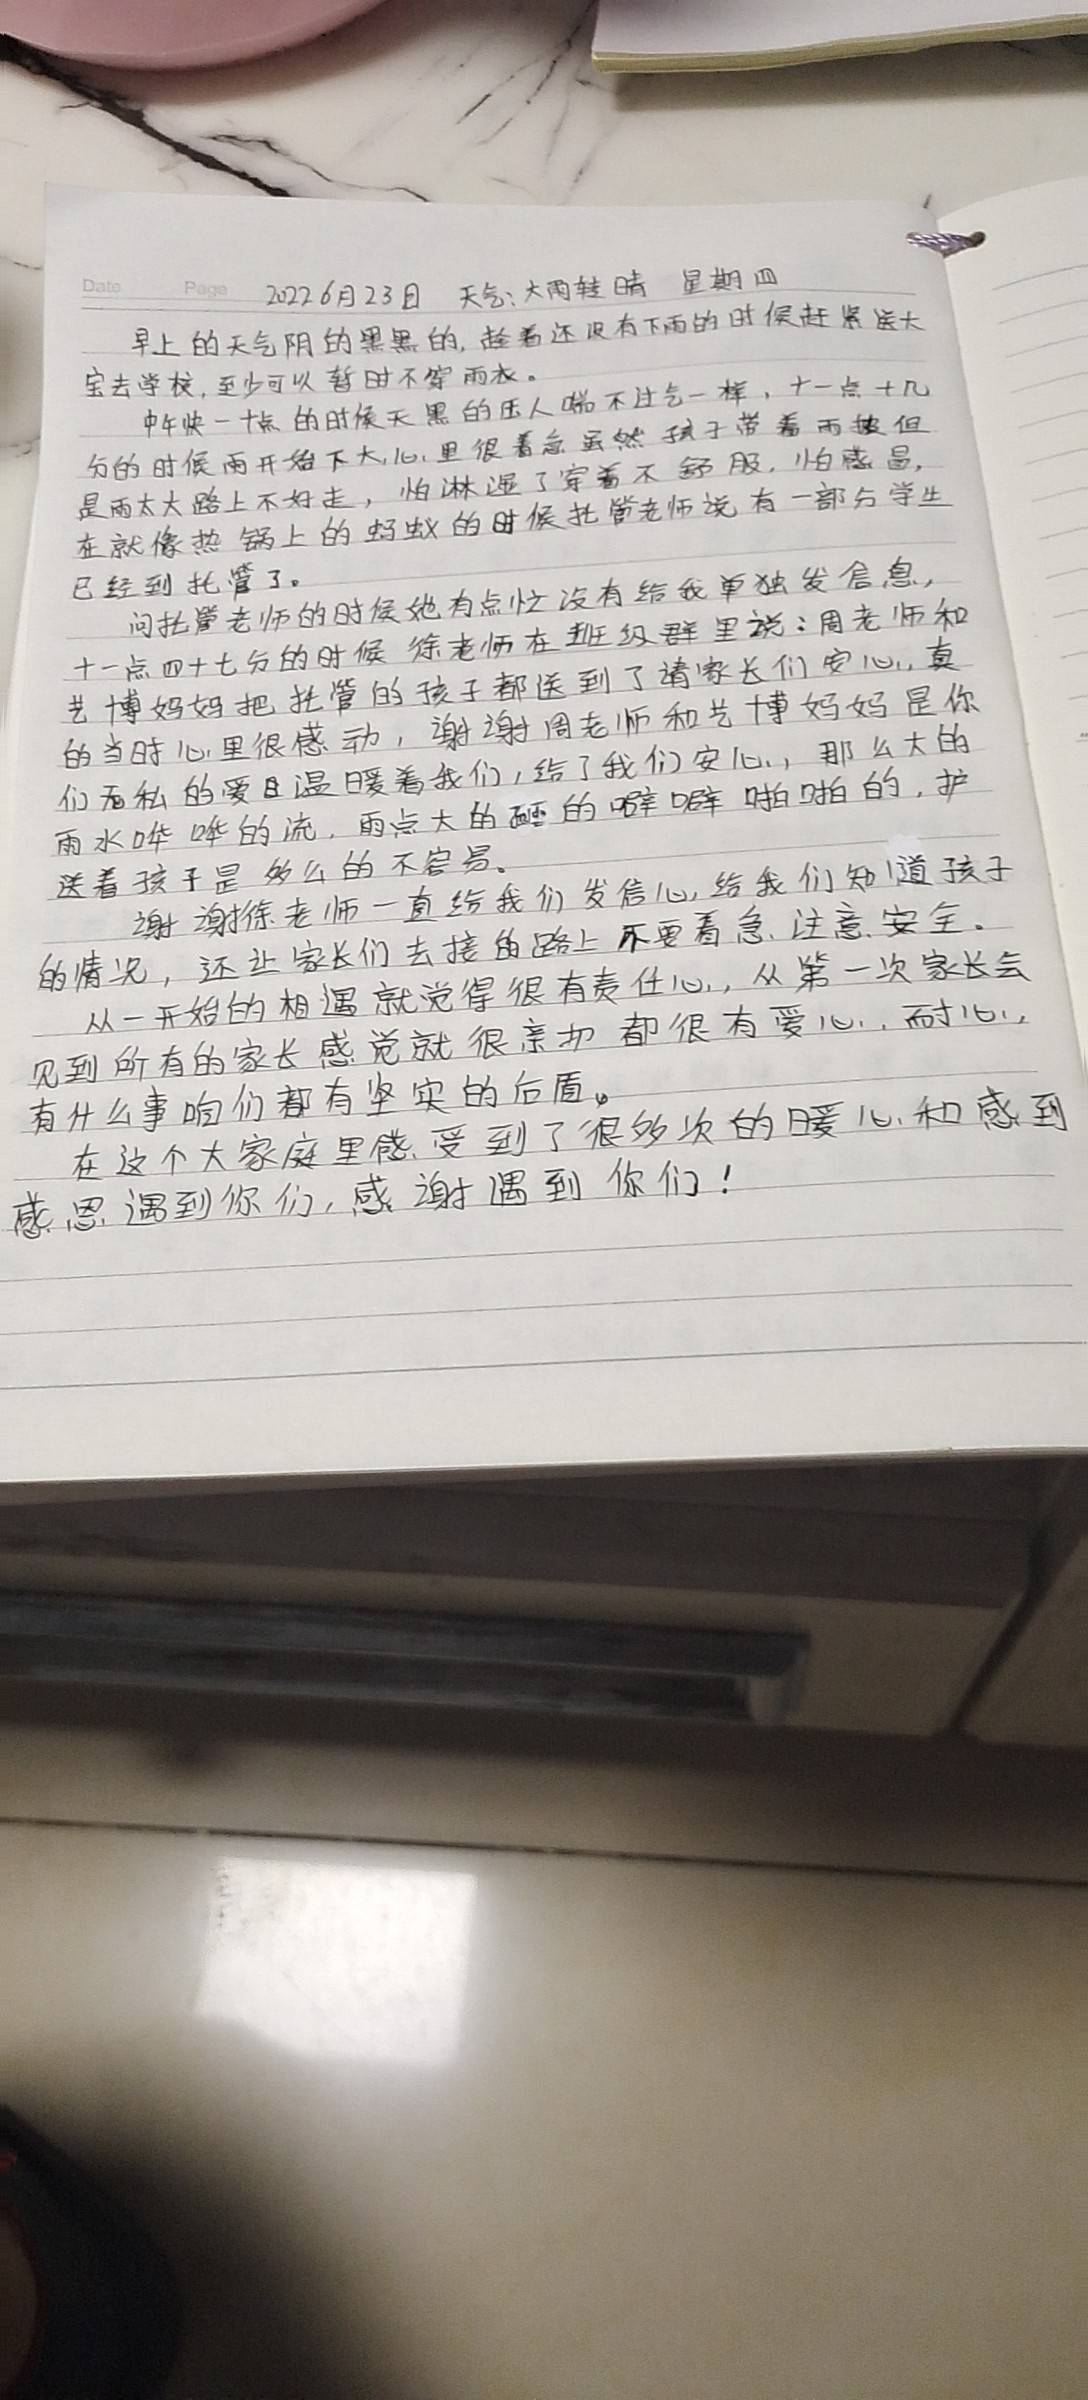 Date Page 2022 6月23日 天气:大雨转晴 星期四
早上的天气阴的黑黑的,趁着还没有下雨的时候赶紧送大
宝去学校,至少可以暂时不穿雨衣。
中午快一十点的时候天黑的压人喘不过气一样,十一点十几
分的时候雨开始下大,心里很着急虽然孩子带着雨披但
是雨太大路上不好走,怕淋湿了穿着不舒服,怕感冒,
在就像热锅上的蚂蚁的时候托管老师说有一部分学生
已经到托管了。
问托管老师的时候她有点忙没有给我单独发信息,
十一点四十七分的时候徐老师在班级群里说:周老师和
艺博妈妈把托管的孩子都送到了请家长们安心,真
的当时心里很感动,谢谢周老师和艺博妈妈是你
们无私的爱温暖着我们,给了我们安心,那么大的
雨水哗哗的流,雨点大的砸的噼噼啪啪的,护
送着孩子是多么的不容易。
谢谢徐老师一直给我们发信心,给我们知道孩子
的情况,还让家长们去接的路上不要着急,注意安全。
从一开始的相遇就觉得很有责任心,从第一次家长会
见到所有的家长感觉就很亲切都很有爱心,耐心,
有什么事咱们都有坚实的后盾。
在这个大家庭里感受到了很多次的暖心和感到
感恩遇到你们,感谢遇到你们!